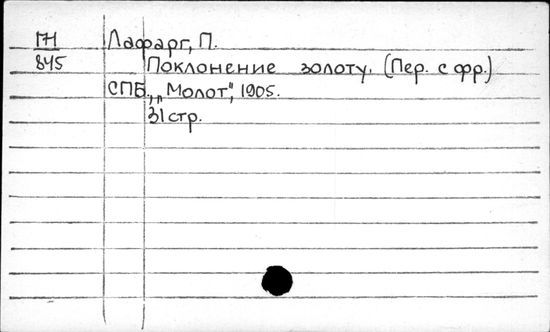 Лафарг, П.
845 Поклонение золоту. (Пер. с фр.)
СПБ., „Молот", 1905.
31 стр.